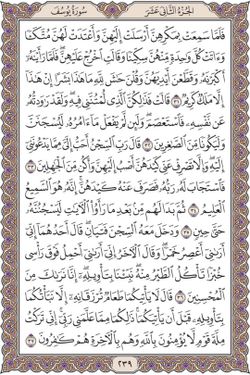 سُورَةُ يُوسُفَ
الجُزْءُ الثَّانِي عَشَرَ
فَلَمَّا سَمِعَتْ بِمَكْرِهِنَّ أَرْسَلَتْ إِلَيْهِنَّ وَأَعْتَدَتْ لَهُنَّ مُتَّكَـًٔا
وَءَاتَتْ كُلَّ وَٰحِدَةٍ مِّنْهُنَّ سِكِّينًا وَقَالَتِ ٱخْرُجْ عَلَيْهِنَّ فَلَمَّا رَأَيْنَهُۥٓ
أَكْبَرْنَهُۥ وَقَطَّعْنَ أَيْدِيَهُنَّ وَقُلْنَ حَٰشَ لِلَّهِ مَا هَٰذَا بَشَرًا إِنْ هَٰذَآ
إِلَّا مَلَكٌ كَرِيمٌ ٣١ قَالَتْ فَذَٰلِكُنَّ ٱلَّذِى لُمْتُنَّنِى فِيهِ وَلَقَدْ رَٰوَدتُّهُۥ
عَن نَّفْسِهِۦ فَٱسْتَعْصَمَ وَلَئِن لَّمْ يَفْعَلْ مَآ ءَامُرُهُۥ لَيُسْجَنَنَّ
وَلَيَكُونًا مِّنَ ٱلصَّٰغِرِينَ ٣٢ قَالَ رَبِّ ٱلسِّجْنُ أَحَبُّ إِلَىَّ مِمَّا يَدْعُونَنِىٓ
إِلَيْهِ وَإِلَّا تَصْرِفْ عَنِّى كَيْدَهُنَّ أَصْبُ إِلَيْهِنَّ وَأَكُن مِّنَ ٱلْجَٰهِلِينَ ٣٣
فَٱسْتَجَابَ لَهُۥ رَبُّهُۥ فَصَرَفَ عَنْهُ كَيْدَهُنَّ إِنَّهُۥ هُوَ ٱلسَّمِيعُ
ٱلْعَلِيمُ ٣٤ ثُمَّ بَدَا لَهُم مِّنۢ بَعْدِ مَا رَأَوُا۟ ٱلْءَايَٰتِ لَيَسْجُنُنَّهُۥ
حَتَّىٰ حِينٍ ٣٥ وَدَخَلَ مَعَهُ ٱلسِّجْنَ فَتَيَانِ قَالَ أَحَدُهُمَآ إِنِّىٓ
أَرَىٰنِىٓ أَعْصِرُ خَمْرًا وَقَالَ ٱلْءَاخَرُ إِنِّىٓ أَرَىٰنِىٓ أَحْمِلُ فَوْقَ رَأْسِى
خُبْزًا تَأْكُلُ ٱلطَّيْرُ مِنْهُ نَبِّئْنَا بِتَأْوِيلِهِۦٓ إِنَّا نَرَىٰكَ مِنَ
ٱلْمُحْسِنِينَ ٣٦ قَالَ لَا يَأْتِيكُمَا طَعَامٌ تُرْزَقَانِهِۦٓ إِلَّا نَبَّأْتُكُمَا
بِتَأْوِيلِهِۦ قَبْلَ أَن يَأْتِيَكُمَا ذَٰلِكُمَا مِمَّا عَلَّمَنِى رَبِّىٓ إِنِّى تَرَكْتُ
مِلَّةَ قَوْمٍ لَّا يُؤْمِنُونَ بِٱللَّهِ وَهُم بِٱلْءَاخِرَةِ هُمْ كَٰفِرُونَ ٣٧
٢٣٩